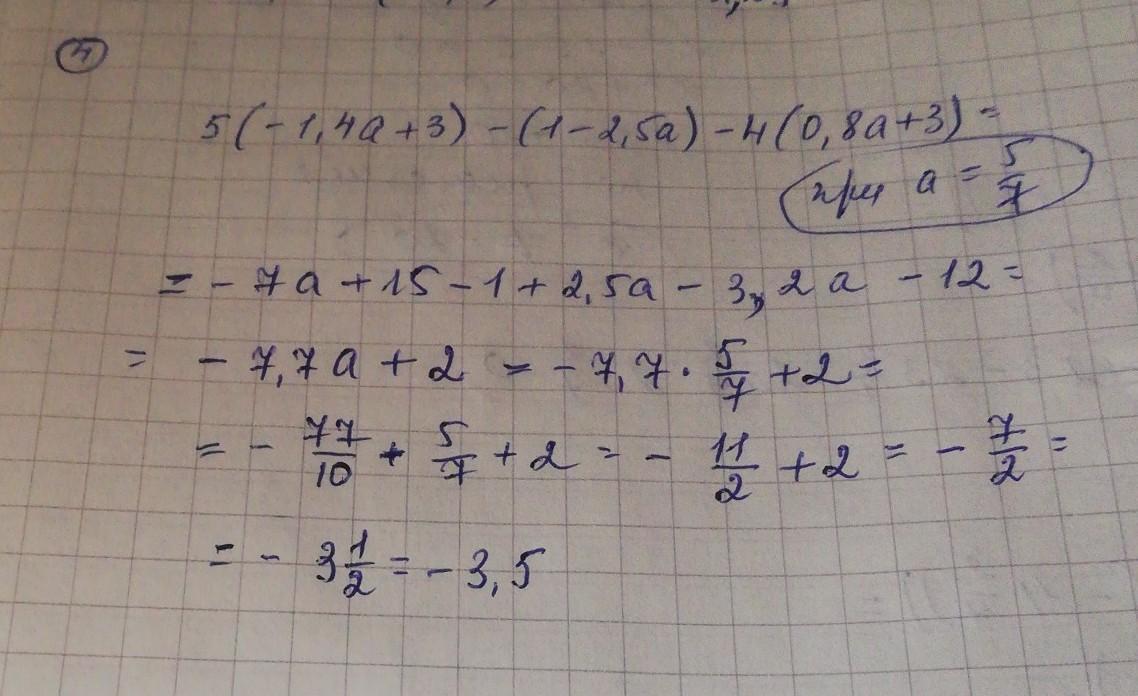 ④
5(-1,4a+3)-(1-2,5a)-4(0,8a+3)=
при a = 5/7
= -7a+15-1+2,5a-3,2a-12=
= -7,7a+2 = -7,7·5/7+2=
= -77/10·5/7+2 = -11/2+2 = -7/2=
= -3 1/2 = -3,5